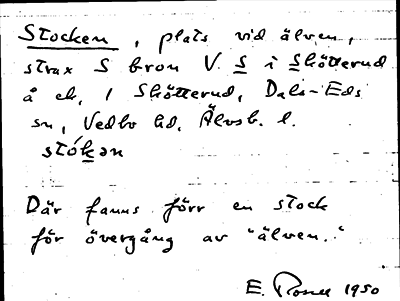 Stocken, plats vid älven,
strax S bron V. S i Skötterud
å ek. 1 Skötterud, Dals-Eds
sn, Vedbo hd, Älvsb. l.
stókən
Där fanns förr en stock
för övergång av "älven."
E. 1950